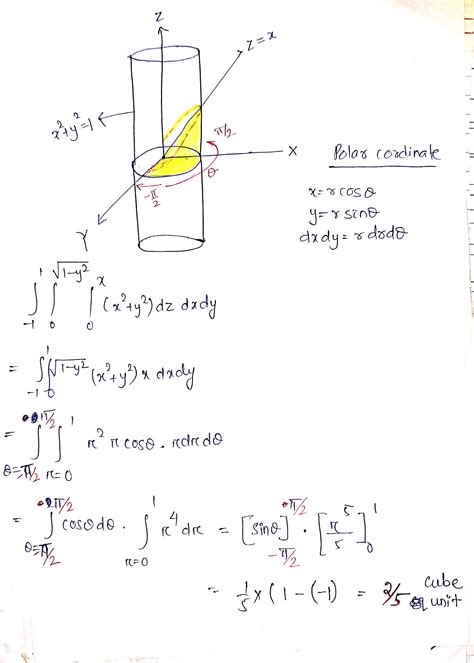 Z
Z=x
x²+y²=1
π/2
θ
X
-π/2
Y
Polar cordinate
x=rcosθ
y=r sinθ
dxdy=r drdθ
∫_{-1}^{1} ∫_{0}^{√1-y²} ∫_{0}^{x} (x²+y²)dz dxdy
= ∫_{-1}^{1} ∫_{0}^{√1-y²} (x²+y²)x dxdy
= ∫_{θ=-π/2}^{π/2} ∫_{r=0}^{1} r² r cosθ . rdrdθ
= ∫_{θ=-π/2}^{π/2} cosθdθ . ∫_{r=0}^{1} r⁴ dr = [sinθ]_{-π/2}^{π/2} . [r⁵/5]_{0}^{1}
= 1/5 x (1-(-1) = 2/5 cube unit